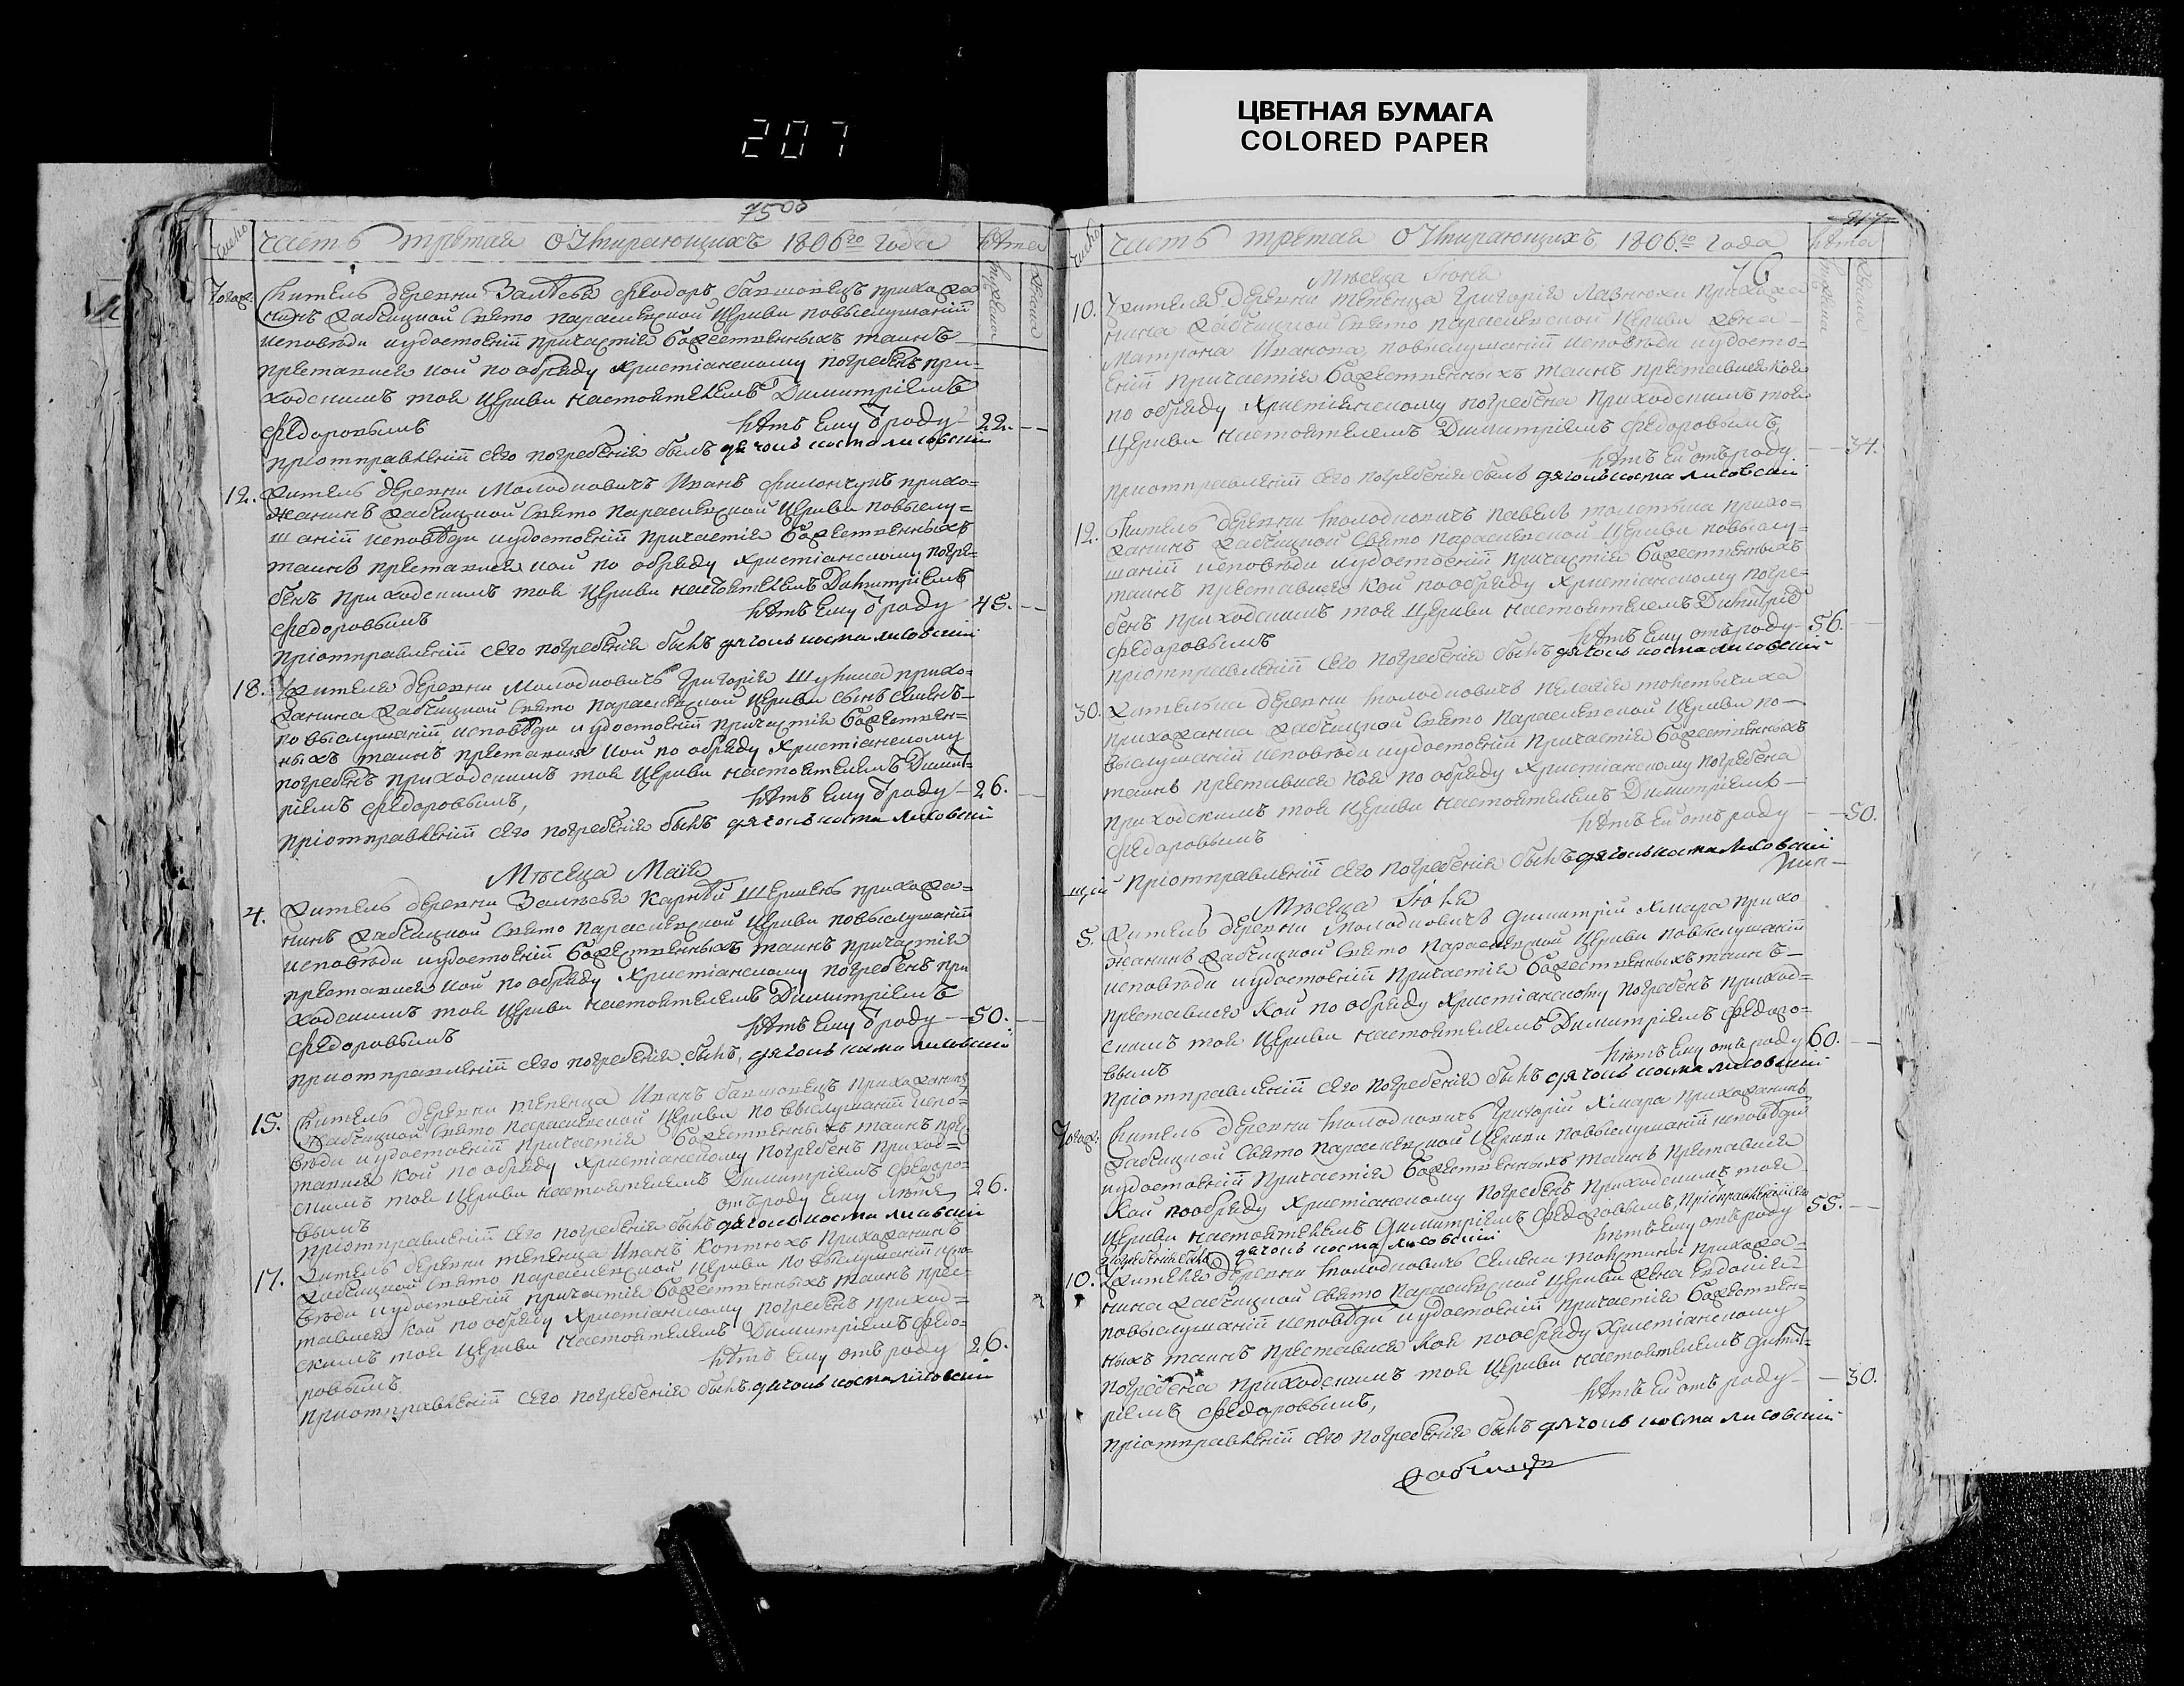 207
ЦВЕТНАЯ БУМАГА
COLORED PAPER
75об
число
часть третая о умирающихъ 1806го года
лѣта
мужеска
женска
7огож.
Житель деревни Залѣсья Феодоръ прихожа
нинъ Рабчицкой Свято параскевской Церкви повыслушаніи
исповѣди иудостоеніи причастія божественныхъ таинъ
преставися кой по обряду христіанскому погребенъ при=
ходскимъ тоя Церкви настоятелемъ Димитріемъ
Федоровымъ лѣтъ ему ѿ роду 22.
приотправленіи сего погребенія былъ дячокъ косма лисовский
12.
Житель деревни Молодковичъ Иванъ прихо=
жанинъ Рабчицкой Свято параскевской Церкви повыслу=
шаніи исповѣди иудостоеніи причастія божественныхъ
таинъ преставися кой по обряду христіанскому погре=
бенъ приходскимъ тоя Церкви настоятелемъ Димитріемъ
Федоровымъ лѣтъ ему ѿ роду 45.
приотправленіи сего погребенія былъ дячокъ косма лисовский
18.
Жителя деревни Молодковичъ Григорія прихо=
жанина Рабчицкой Свято параскевской Церкви сынъ
по выслушаніи исповѣди и удостоеніи причастія божествен=
ныхъ таинъ преставися кой по обряду христіанскому
погребенъ приходскимъ тоя Церкви настоятелемъ Димит=
ріемъ Федоровымъ, лѣтъ ему ѿ роду 26.
приотправленіи сего погребенія былъ дячокъ косма лисовский
Мѣсеца Маія
4.
Житель деревни Залѣсья Карпѣй прихожа=
нинъ Рабчицкой Свято параскевской Церкви повыслушаніи
исповѣди иудостоеніи божественныхъ таинъ причастія
преставися кой по обряду христіанскому погребенъ при
ходскимъ тоя Церкви настоятелемъ Димитріемъ
Федоровымъ лѣтъ ему ѿ роду 50.
приотправленіи сего погребенія былъ, дячокъ косма лисовский
15.
Житель деревни Тепенца Иванъ прихожанинъ
Рабчицкой Свято параскевской Церкви по выслушаніи испо=
вѣди иудостоеніи причастія божественныхъ таинъ пре
тавися кой по обряду христіанскому погребенъ приход=
скимъ тоя Церкви настоятелемъ Димитріемъ Федоро=
вымъ отъ роду ему лѣтъ 26.
приотправленіи сего погребенія былъ дячокъ косма лисовский
17.
Житель деревни Тепенца Иванъ Коптюхъ прихожанинъ
Рабчицкой Свято параскевской Церкви по выслушаніи испо=
вѣди иудостоеніи причастія божественныхъ таинъ прес=
тавися кой по обряду христіанскому погребенъ приход=
скимъ тоя Церкви настоятелемъ Димитріемъ Федо=
ровымъ, лѣтъ ему отъ роду 26.
приотправленіи сего погребенія былъ дячокъ косма лисовский
217
76
число
часть третая о умирающихъ 1806го года
лѣта
мужеска
женска
Мѣсеца Іюня
10.
Жителя деревни Тепенца Григорія Лазнюхи прихожа
нина Рабчицкой Свято параскевской Церкви жена
Матрона Иванова, повыслушаніи исповѣди иудосто=
еніи причастія божественныхъ таинъ преставися коя
по обряду христіанскому погребена приходскимъ тоя
Церкви настоятелемъ Димитріемъ Федоровымъ,
лѣтъ ей отъ роду 34.
приотправленіи сего погребенія былъ дячокъ косма лисовский
12.
Житель деревни Молодковичъ павелъ прихо=
жанинъ Рабчицкой Свято параскевской Церкви повыслу=
шаніи исповѣди иудостоеніи причастія божественныхъ
таинъ преставися кой пообряду христіанскому погре=
бенъ приходскимъ тоя Церкви настоятелемъ Димитріе
Федоровымъ лѣтъ ему отъ роду 56.
приотправленіи сего погребенія былъ дячокъ косма лисовский
30.
Жителька деревни Молодковичъ
прихожанка Рабчицкой Свято параскевской Церкви по=
выслушаніи исповѣди иудостоеніи причастія божественныхъ
таинъ преставися коя по обряду христіанскому погребена
приходскимъ тоя Церкви настоятелемъ Димитріемъ
Федоровымъ лѣтъ ей отъ роду 50.
приотправленіи сего погребенія былъ дячокъ косма лисовский
Мѣсеца Іюля
5.
Житель деревни Молодковичъ димитрій Хмара прихо
жанинъ Рабчицкой Свято параскевской Церкви повыслушаніи
исповѣди иудостоеніи причастія божественныхъ таинъ
преставися кой по обряду христіанскому погребенъ приход=
скимъ тоя Церкви настоятелемъ Димитріемъ Федоро=
вымъ лѣтъ ему отъ роду 60.
приотправленіи сего погребенія былъ дячокъ косма лисовский
7огож.
Житель деревни Молодковичъ Григорій Хмара прихожанинъ
Рабчицкой Свято параскевской Церкви повыслушаніи исповѣди
иудостоеніи причастія божественныхъ таинъ преставися
кой пообряду христіанскому погребенъ приходскимъ тоя
Церкви настоятелемъ димитріемъ Федоровымъ, приотправленіи сего
погребенія былъ дячокъ косма лисовский лѣтъ ему отъ роду 55.
10.
Жителя деревни Молодковичъ Семена прихожа=
нина Рабчицкой Свято параскевской Церкви жена Евдокія
повыслушаніи исповѣди иудостоеніи причастія божествен=
ныхъ таинъ преставися коя пообряду христіанскому
погребена приходскимъ тоя Церкви настоятелемъ димит=
ріемъ Федоровымъ, лѣтъ ей отъ роду 30.
приотправленіи сего погребенія былъ дячокъ косма лисовский